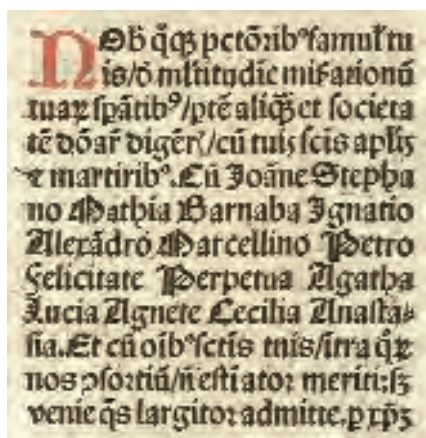 NOb̄ q̄q̨ pctōrib⁹ famul̄ tu
is/d̄ ml̄titudīe mis̄ationū
tuaꝝ sꝑātib⁹/ptē aliq̄ꝫ et societa
tē dōar̄ digēr̄/cū tuis scīs apl̄is
⁊ martirib⁹. Cū Joāne Stepha
no Mathia Barnaba Ignatio
Alexādro Marcellino Petro
Felicitate Perpetua Agatha
Lucia Agnete Cecilia Anasta⸗
sia. Et cū oīb⁹ sctīs tuis/ītra q̄ꝝ
nos ꝯsortiū/n̄ estīator meriti:sꝫ
venie q̄s largitor admitte. ꝑ xp̄ꝫ